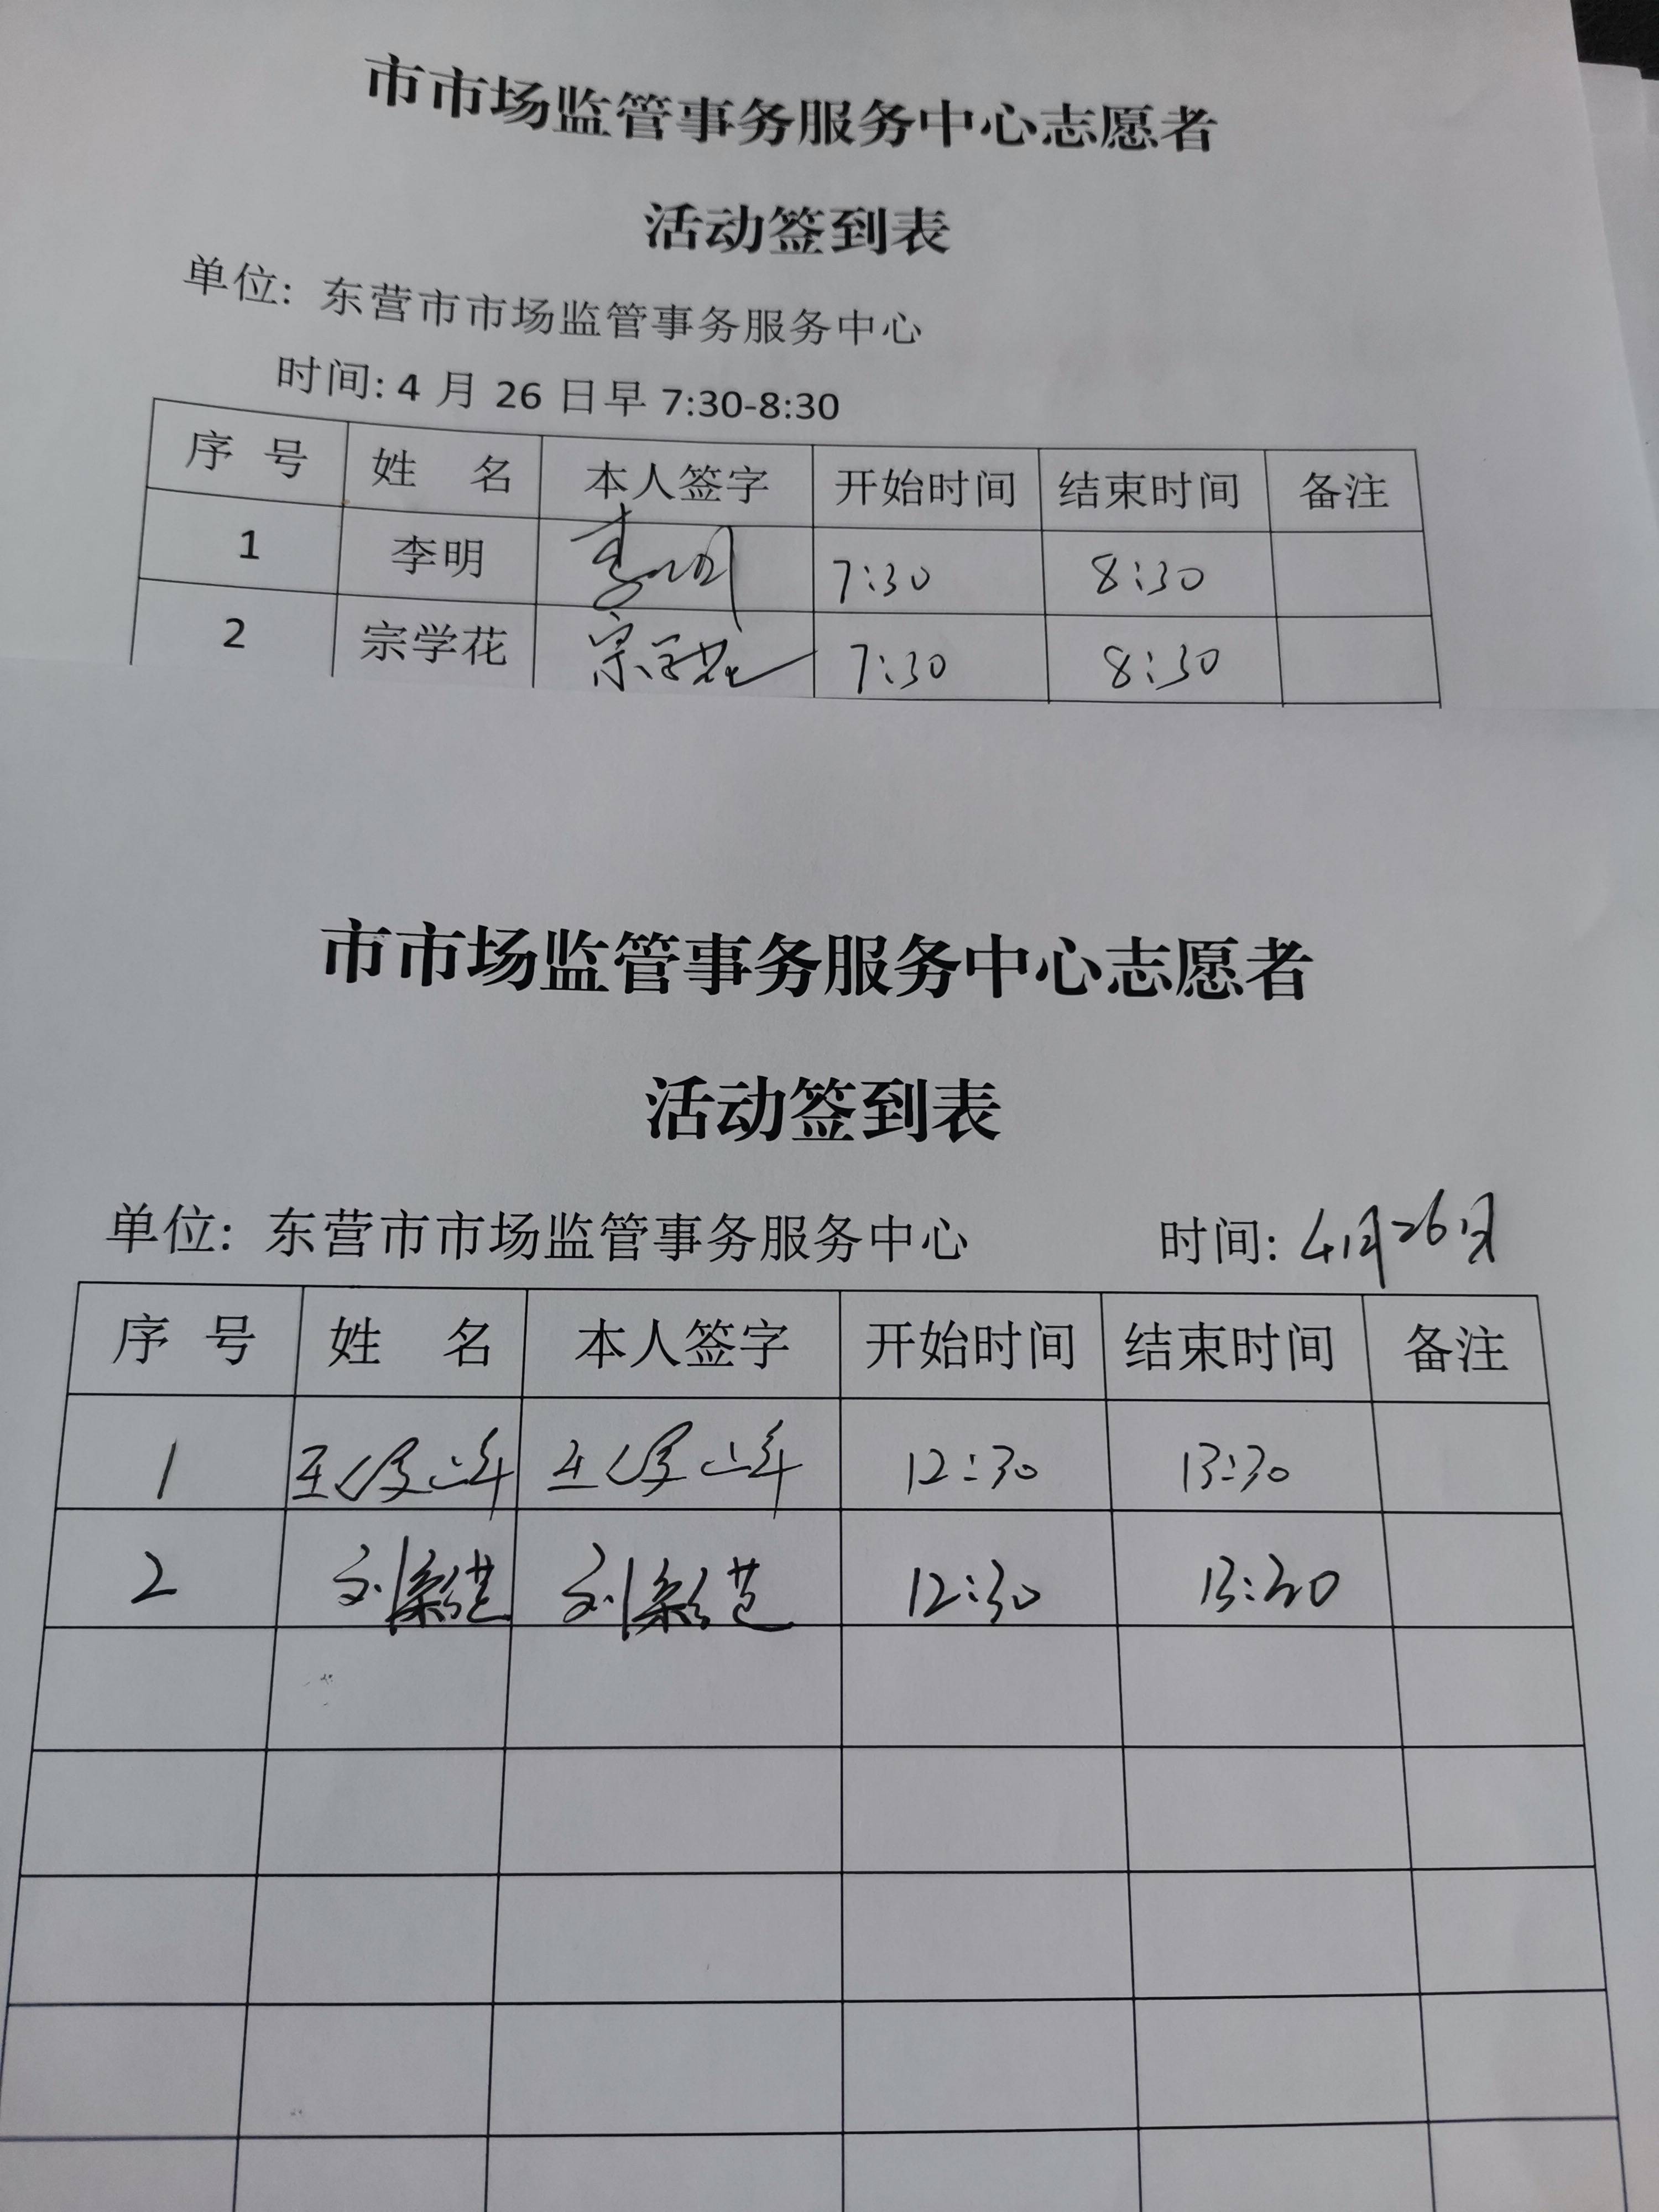 市市场监管事务服务中心志愿者
活动签到表
单位: 东营市市场监管事务服务中心
时间: 4 月 26 日早 7:30-8:30
序 号 姓 名 本人签字 开始时间 结束时间 备注
1 李明 李明 7:30 8:30
2 宗学花 宗学花 7:30 8:30
市市场监管事务服务中心志愿者
活动签到表
单位: 东营市市场监管事务服务中心 时间: 4月26日
序 号 姓 名 本人签字 开始时间 结束时间 备注
1 12:30 13:30
2 12:30 13:30